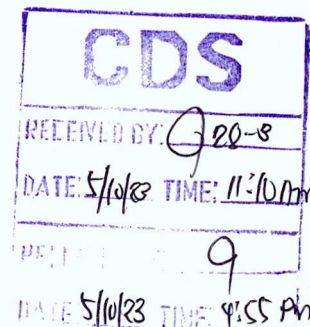 CDS
RECEIVED BY: 28-B
DATE: 5/10/23 TIME: 11:10 Am
DATE: 5/10/23 TIME: 4:55 Pm